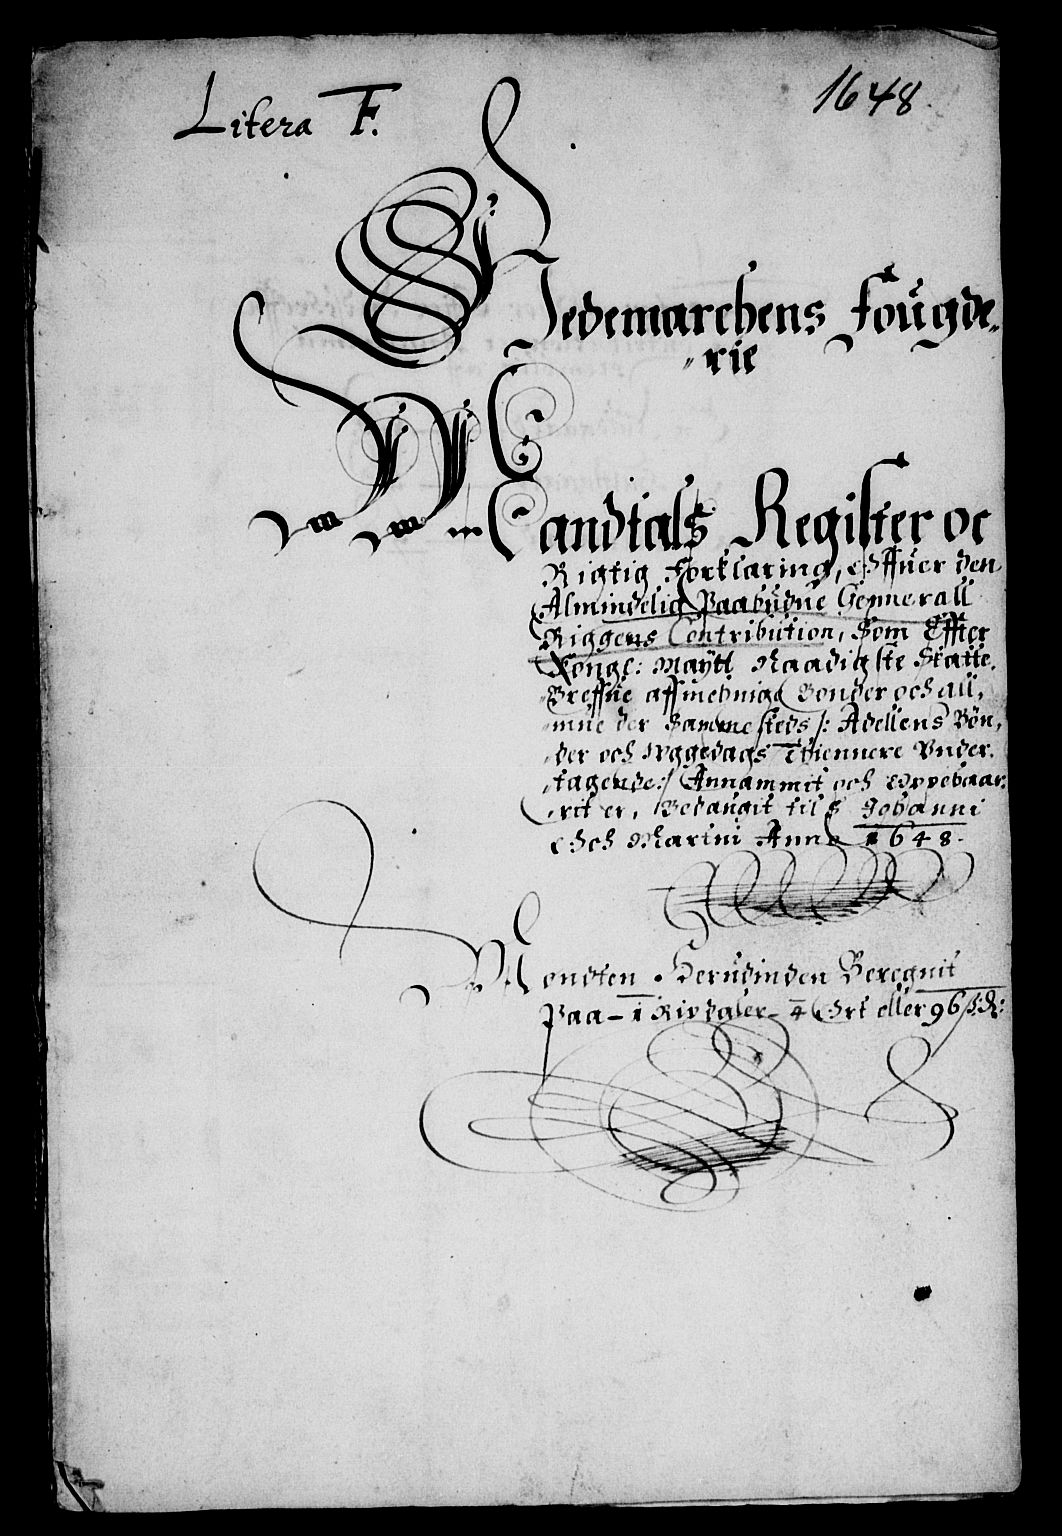 Litera F.
1648
Hedemarchens Fougde-
rie
Mandtals Register oc
Rigtig Forklaring, offuer den
Almindelig Paabudne Gennerall
Riggens Contribution, Som Effter
Konge: Maytt Naadigste Skatte
Breffue aff menige Bønder och all,
mue der Sammesteds /: Adellens Bøn,
der och Uggedags Thiennere Under
tagende:/ Annammit och Oppebaar,
rit er, Bedaugit til S Johanni
Och Martini Anno 1648.
Mondten Herudinden Beregnit
Paa - 1 Rixdaler - 4 Ort eller 96 ß: